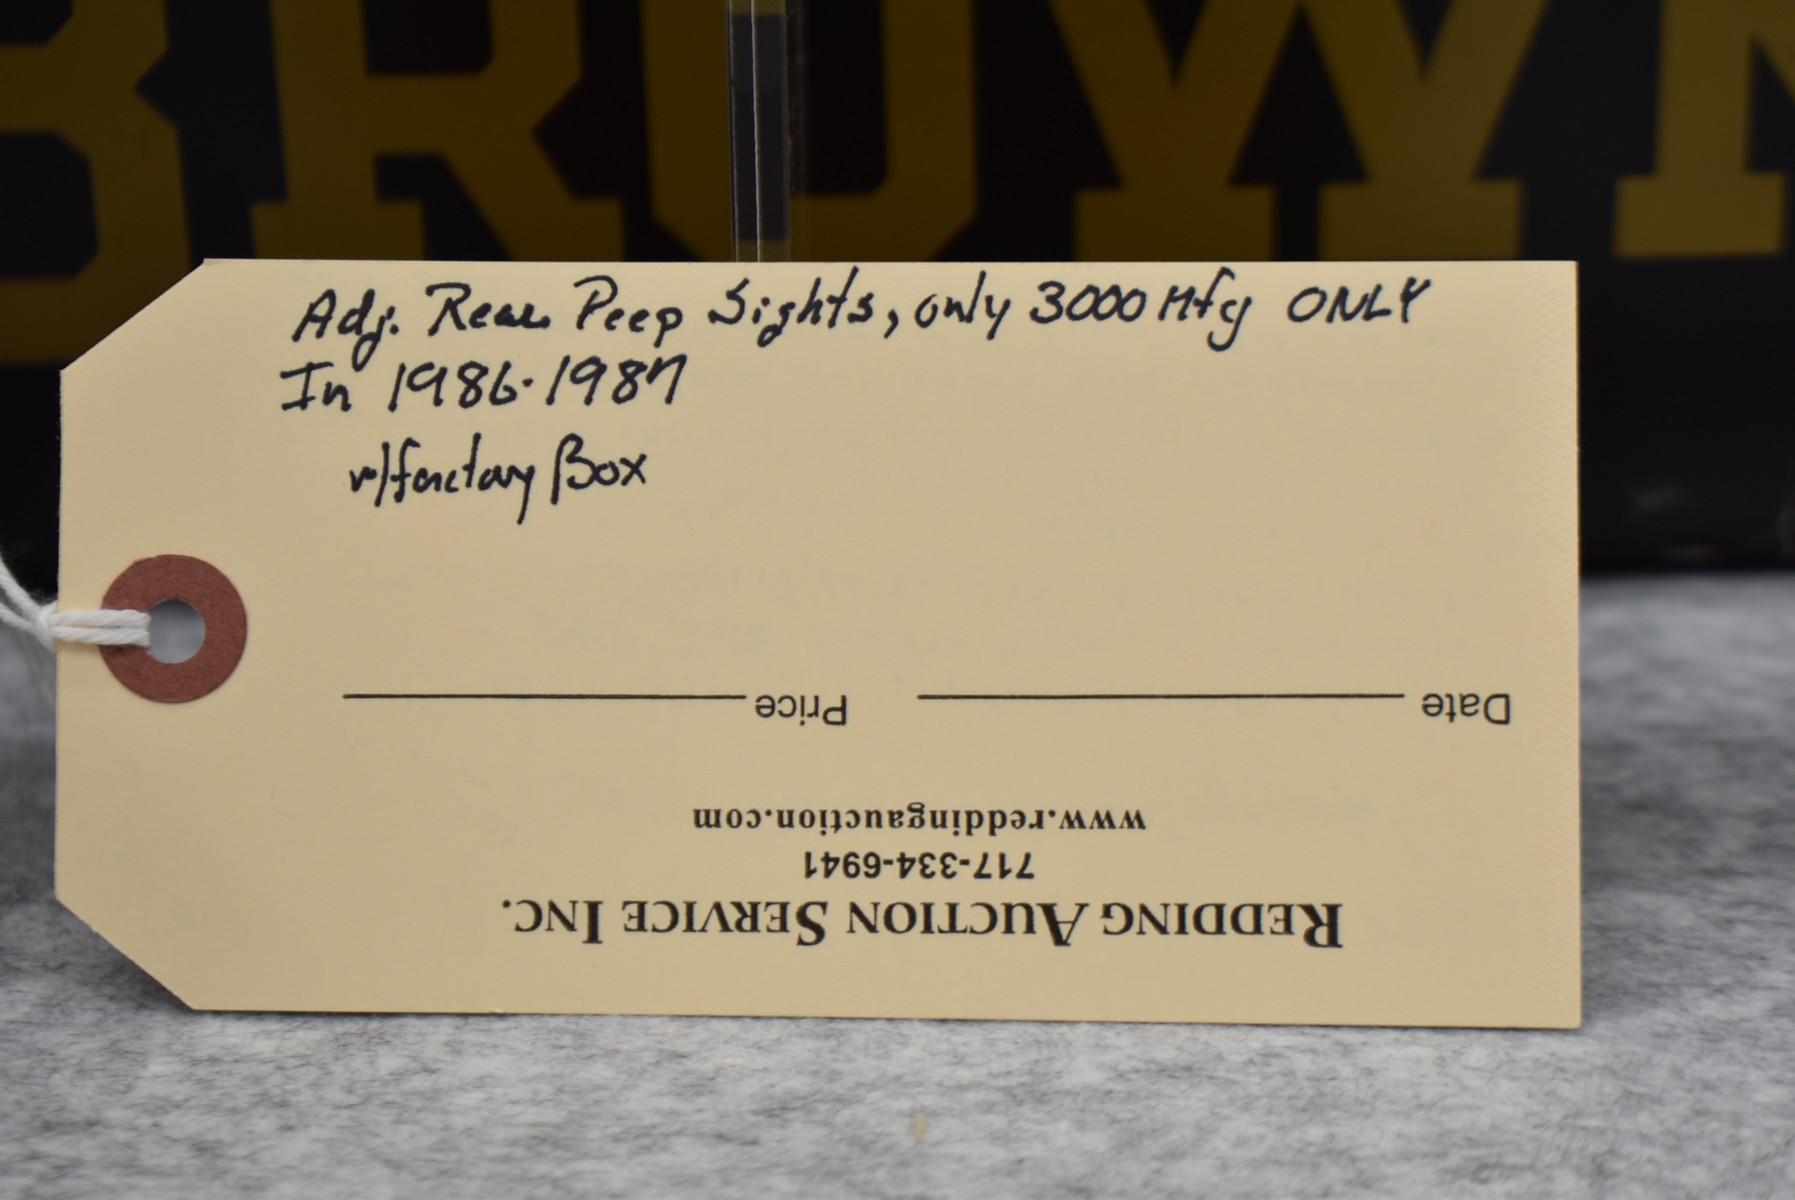 BROWN
Adj. Rear Peep Sights, only 3000 Mfg ONLY
In 1986-1987
w/factory Box
Date Price
www.reddingauction.com
717-334-6941
REDDING AUCTION SERVICE INC.